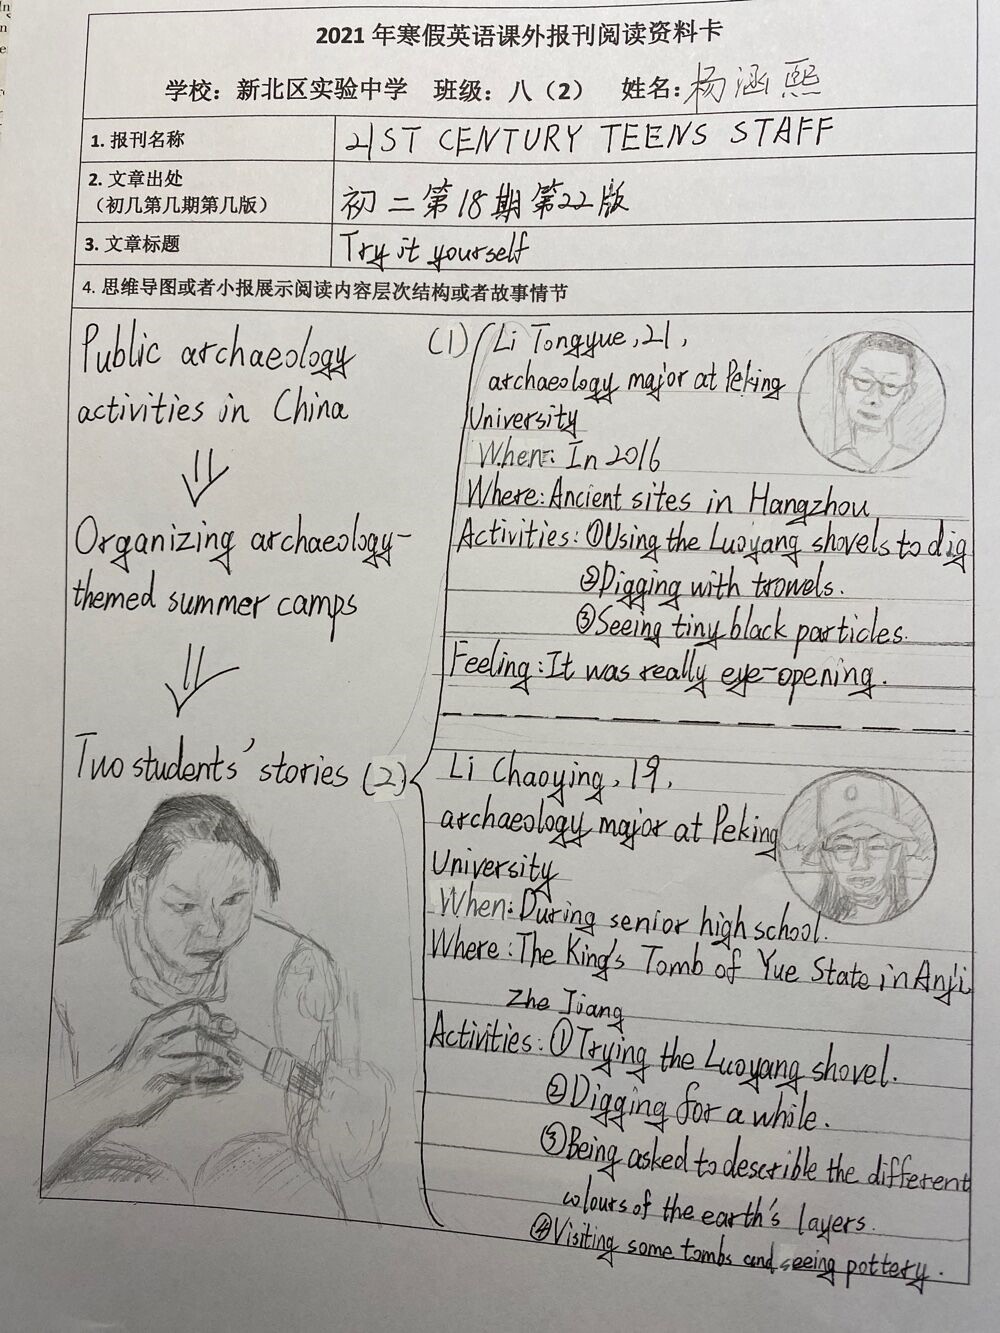 2021 年寒假英语课外报刊阅读资料卡
学校：新北区实验中学 班级：八（2） 姓名：杨涵熙
1. 报刊名称
21ST CENTURY TEENS STAFF
2. 文章出处
（初几第几期第几版）
初二第18期第22版
3. 文章标题
Try it yourself
4. 思维导图或者小报展示阅读内容层次结构或者故事情节
Public archaeology
activities in China
Organizing archaeology-
themed summer camps
Two students' stories
(1) Li Tongyue, 21,
archaeology major at Peking
University
When: In 2016
Where: Ancient sites in Hangzhou
Activities: ①Using the Luoyang shovels to dig
②Digging with trowels.
③Seeing tiny black particles.
Feeling: It was really eye-opening.
(2) Li Chaoying, 19,
archaeology major at Peking
University
When: During senior high school.
Where: The King's Tomb of Yue State in Anji
Zhe Jiang
Activities: ①Trying the Luoyang shovel.
②Digging for a while.
③Being asked to describle the different
colours of the earth's layers.
④Visiting some tombs and seeing pottery.